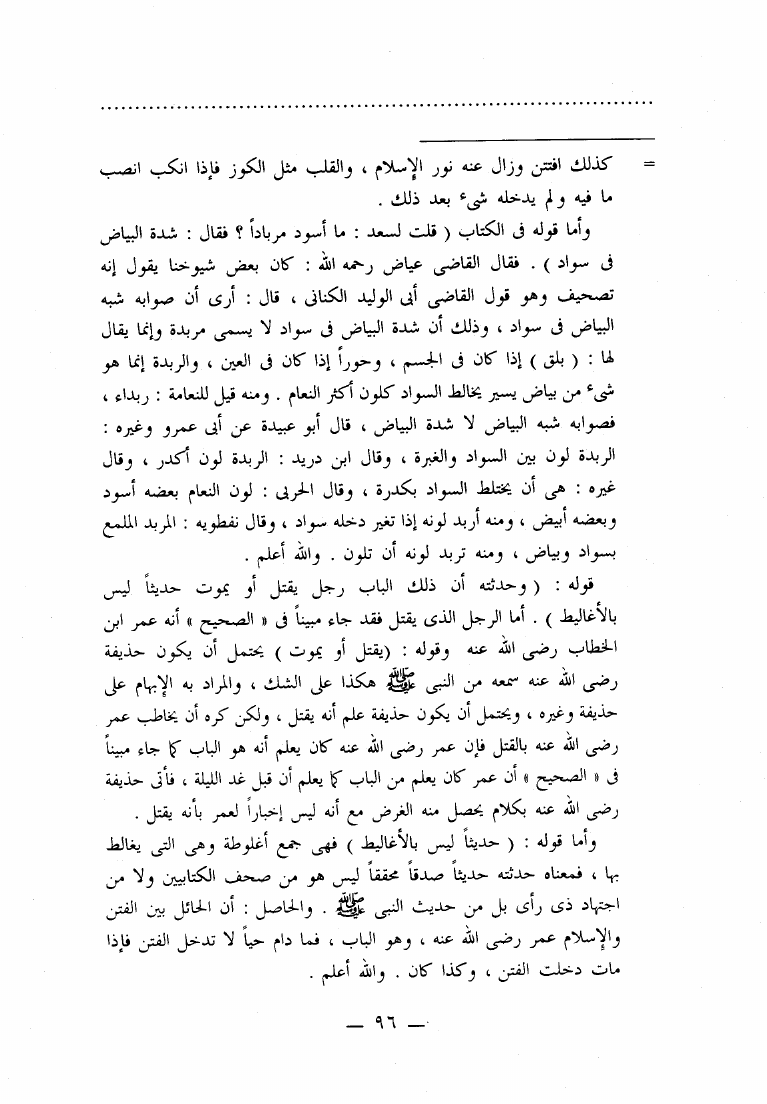 = كذلك افتتن وزال عنه نور الإسلام ، والقلب مثل الكوز فإذا انكب انصب
ما فيه ولم يدخله شىء بعد ذلك .
وأما قوله فى الكتاب ( قلت لسعد : ما أسود مرباداً ؟ فقال : شدة البياض
فى سواد ) . فقال القاضى عياض رحمه الله : كان بعض شيوخنا يقول إنه
تصحيف وهو قول القاضى أبى الوليد الكنانى ، قال : أرى أن صوابه شبه
البياض فى سواد ، وذلك أن شدة البياض فى سواد لا يسمى مربدة وإنما يقال
لها : ( بلق ) إذا كان فى الجسم ، وحوراً إذا كان فى العين ، والربدة إنما هو
شىء من بياض يسير يخالط السواد كلون أكثر النعام . ومنه قيل للنعامة : ربداء ،
فصوابه شبه البياض لا شدة البياض ، قال أبو عبيدة عن أبى عمرو وغيره :
الربدة لون بين السواد والغبرة ، وقال ابن دريد : الربدة لون أكدر ، وقال
غيره : هى أن يختلط السواد بكدرة ، وقال الحربى : لون النعام بعضه أسود
وبعضه أبيض ، ومنه أربد لونه إذا تغير دخله سواد ، وقال نفطويه : المربد الملمع
بسواد وبياض ، ومنه تربد لونه أن تلون . والله أعلم .
قوله : ( وحدثته أن ذلك الباب رجل يقتل أو يموت حديثاً ليس
بالأغاليط ) . أما الرجل الذى يقتل فقد جاء مبيناً فى « الصحيح » أنه عمر ابن
الخطاب رضى الله عنه وقوله : (يقتل أو يموت ) يحتمل أن يكون حذيفة
رضى الله عنه سمعه من النبى ﷺ هكذا على الشك ، والمراد به الإبهام على
حذيفة وغيره ، ويحتمل أن يكون حذيفة علم أنه يقتل ، ولكن كره أن يخاطب عمر
رضى الله عنه بالقتل فإن عمر رضى الله عنه كان يعلم أنه هو الباب كما جاء مبيناً
فى « الصحيح » أن عمر كان يعلم من الباب كما يعلم أن قبل غد الليلة ، فأتى حذيفة
رضى الله عنه بكلام يحصل منه الغرض مع أنه ليس إخباراً لعمر بأنه يقتل .
وأما قوله : ( حديثاً ليس بالأغاليط ) فهى جمع أغلوطة وهى التى يغالط
بها ، فمعناه حدثته حديثاً صدقاً محققاً ليس هو من صحف الكتابيين ولا من
اجتهاد ذى رأى بل من حديث النبى ﷺ . والحاصل : أن الحائل بين الفتن
والإسلام عمر رضى الله عنه ، وهو الباب ، فما دام حياً لا تدخل الفتن فإذا
مات دخلت الفتن ، وكذا كان . والله أعلم .
— ٩٦ —